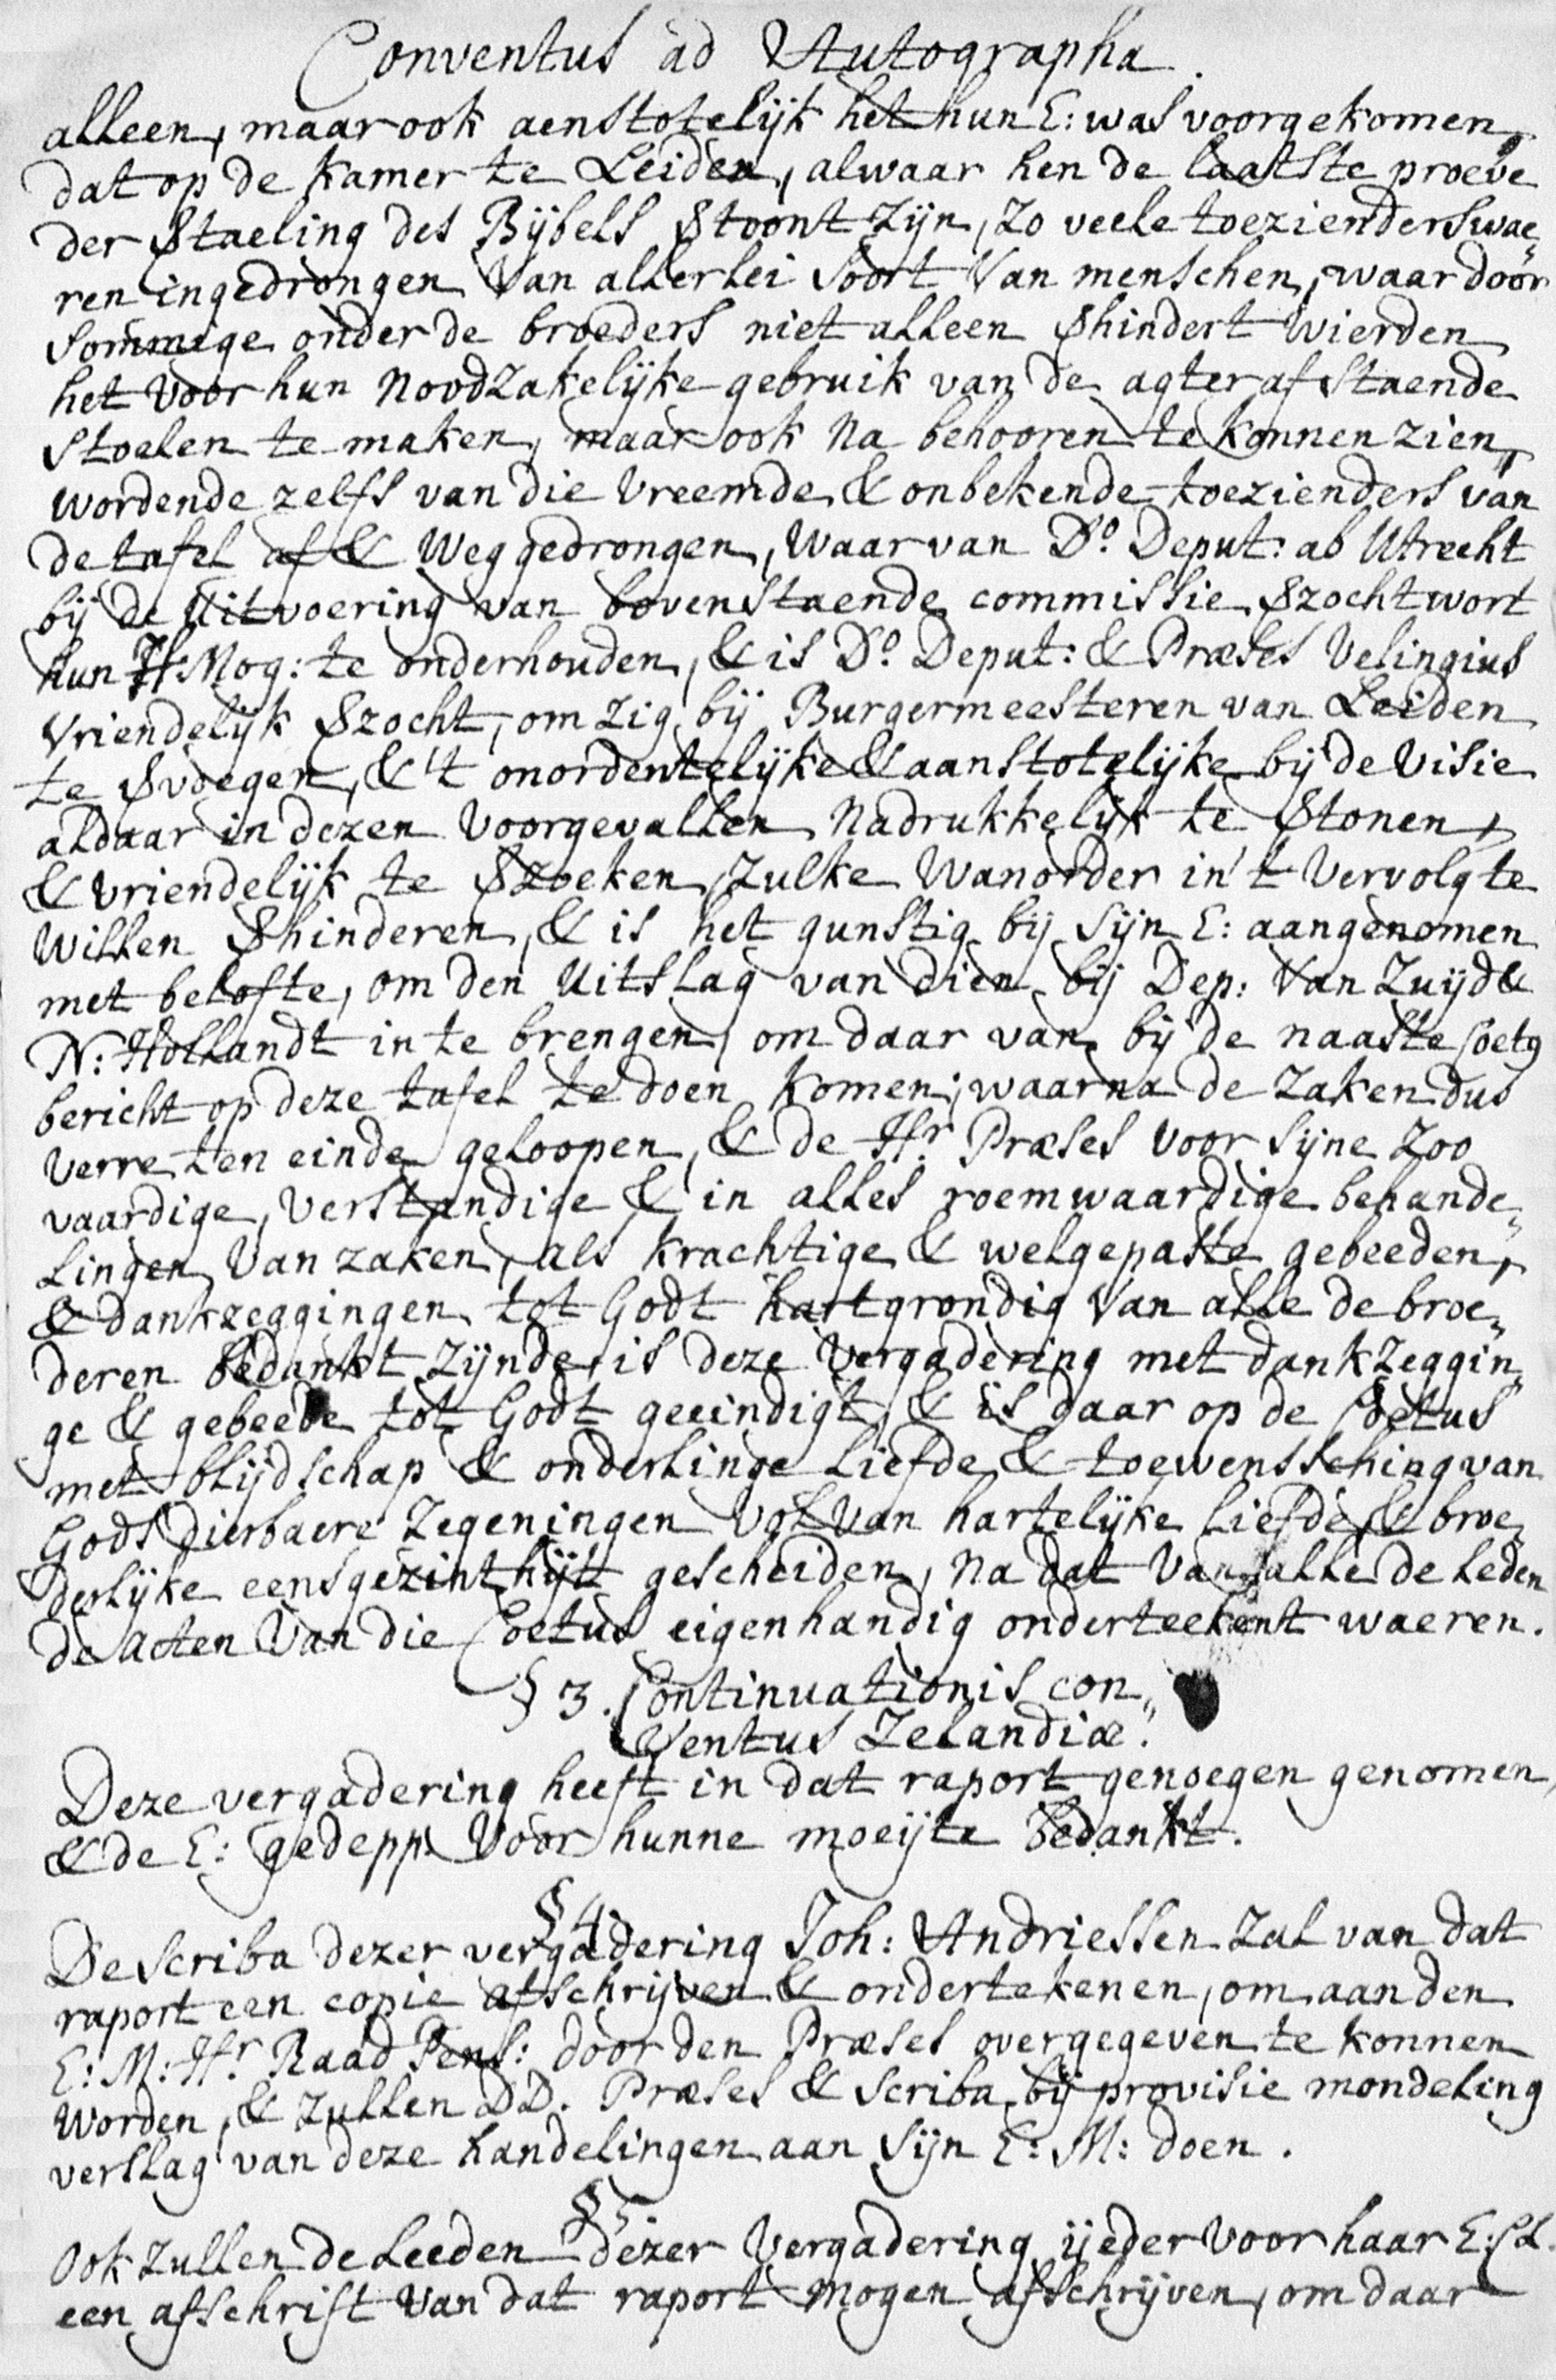 Conventus ad Autographa.
alleen, maar ook aenstotelijk het hun E: was voorgekomen,
dat op de kamer te Leiden, alwaar hen de laatste proeve
der Staeling des Bijbels Stoont zijn, zo veele toezienders wae„
ren ingedrongen van allerlei soort van menschen, waar door
sommige onder de broeders niet alleen Shindert wierden
het voor hun noodzakelijke gebruik van de agter af staende
stoelen te maken, maar ook na behooren te konnen zien,
wordende zelfs van die vreemde & onbekende toezienders van
de tafel af & weggedrongen, waar van Do. Deput: ab Utrecht
bij de uitvoering van bovenstaende commissie Szocht wort
hun H: Mog: te onderhouden, & is Do. Deput: & Præses Velingius
vriendelijk Szocht, om zig bij Burgermeesteren van Leiden
te Svoegen, & 't onordentelijke & aanstotelijke bij de visie
aldaar in dezen voorgevallen nadrukkelijk te Stonen,
& vriendelijk te Szoeken, zulke wanorder in 't vervolg te
willen Shinderen, & is het gunstig bij sijn E: aangenomen
met belofte, om den uitslag van dien bij Dep: van Zuijd &
N: Hollandt in te brengen, om daar van bij de naaste Coetg
bericht op deze tafel te doen komen; waarna de zaken dus
verre ten einde geloopen, & de Hr. Præses voor sijne zoo
vaardige, verstandige & in alles roemwaardige behande„
lingen van zaken, als krachtige & welgepaste gebeeden,
& dankzeggingen tot Godt hartgrondig van alle de broe„
deren bedankt zijnde, is deze vergadering met dankzeggin„
ge & gebeede tot Godt geeindigt, & is daar op de Coetus
met blijdschap & onderlinge liefde & toewensching van
Gods dierbaere zegeningen vol van hartelijke liefde & broe„
derlijke eensgezintheijt gescheiden, na dat van alle de leden
de acten van die Coetus eigenhandig onderteekent waeren.
§ 3. Continuationis con„
ventus Zelandiæ.
Deze vergadering heeft in dat raport genoegen genomen,
& de E: gedepp. voor hunne moeijte bedankt.
§ 4.
De scriba dezer vergadering Joh: Andriessen zal van dat
raport een copie afschrijven & ondertekenen, om aan den
E: M: Hr. Raad Pens: door den Præses overgegeven te konnen
worden, & zullen DD. Præses & scriba bij provisie mondeling
verslag van deze handelingen aan sijn E: M: doen.
§ 5
Ook zullen de leeden dezer vergadering ijeder voor haar E: Cl.
een afschrift van dat raport mogen afschrijven, om daar